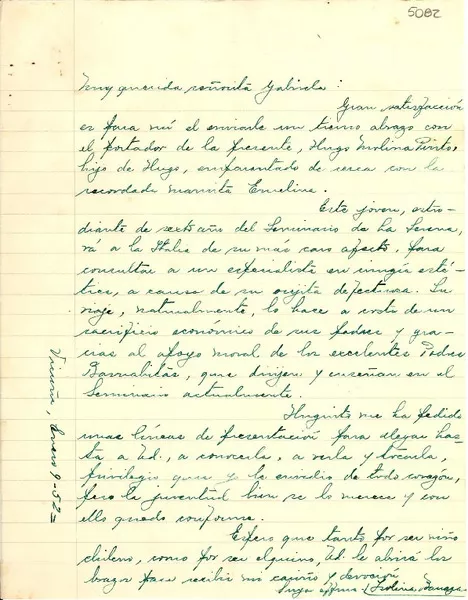 5082
Muy querida señorita Gabriela:
Gran satisfacción
es para mí el enviarle un tierno abrazo con
el portador de la presente, Hugo Molina Pinto,
hijo de Hugo, emparentado de cerca con la
recordada mamita Emelina.
Este joven, estu-
diante de sexto año del Seminario de La Serena,
vá a la Italia de su más caro afecto, para
consultar a un especialista en cirugía esté-
tica, a causa de su orejita defectuosa. Su
viaje, naturalmente, lo hace a costa de un
sacrificio económico de sus padres y gra-
cias al apoyo moral de los excelentes Padres
Barnabitas, que dirigen y enseñan en el
Seminario actualmente.
Huguito me ha pedido
unas líneas de presentación para llegar has-
ta a Ud., a conocerla, a verla y tocarla,
privilegio que yo le envidio de todo corazón,
pero la juventud bien se lo merece y con
ello quedo conforme.
Espero que tanto por ser niño
chileno, como por ser elquino, Ud. le abrirá los
brazos para recibir mi cariño y devoción
Isolina Barraza
Vicuña, Enero 9-52=